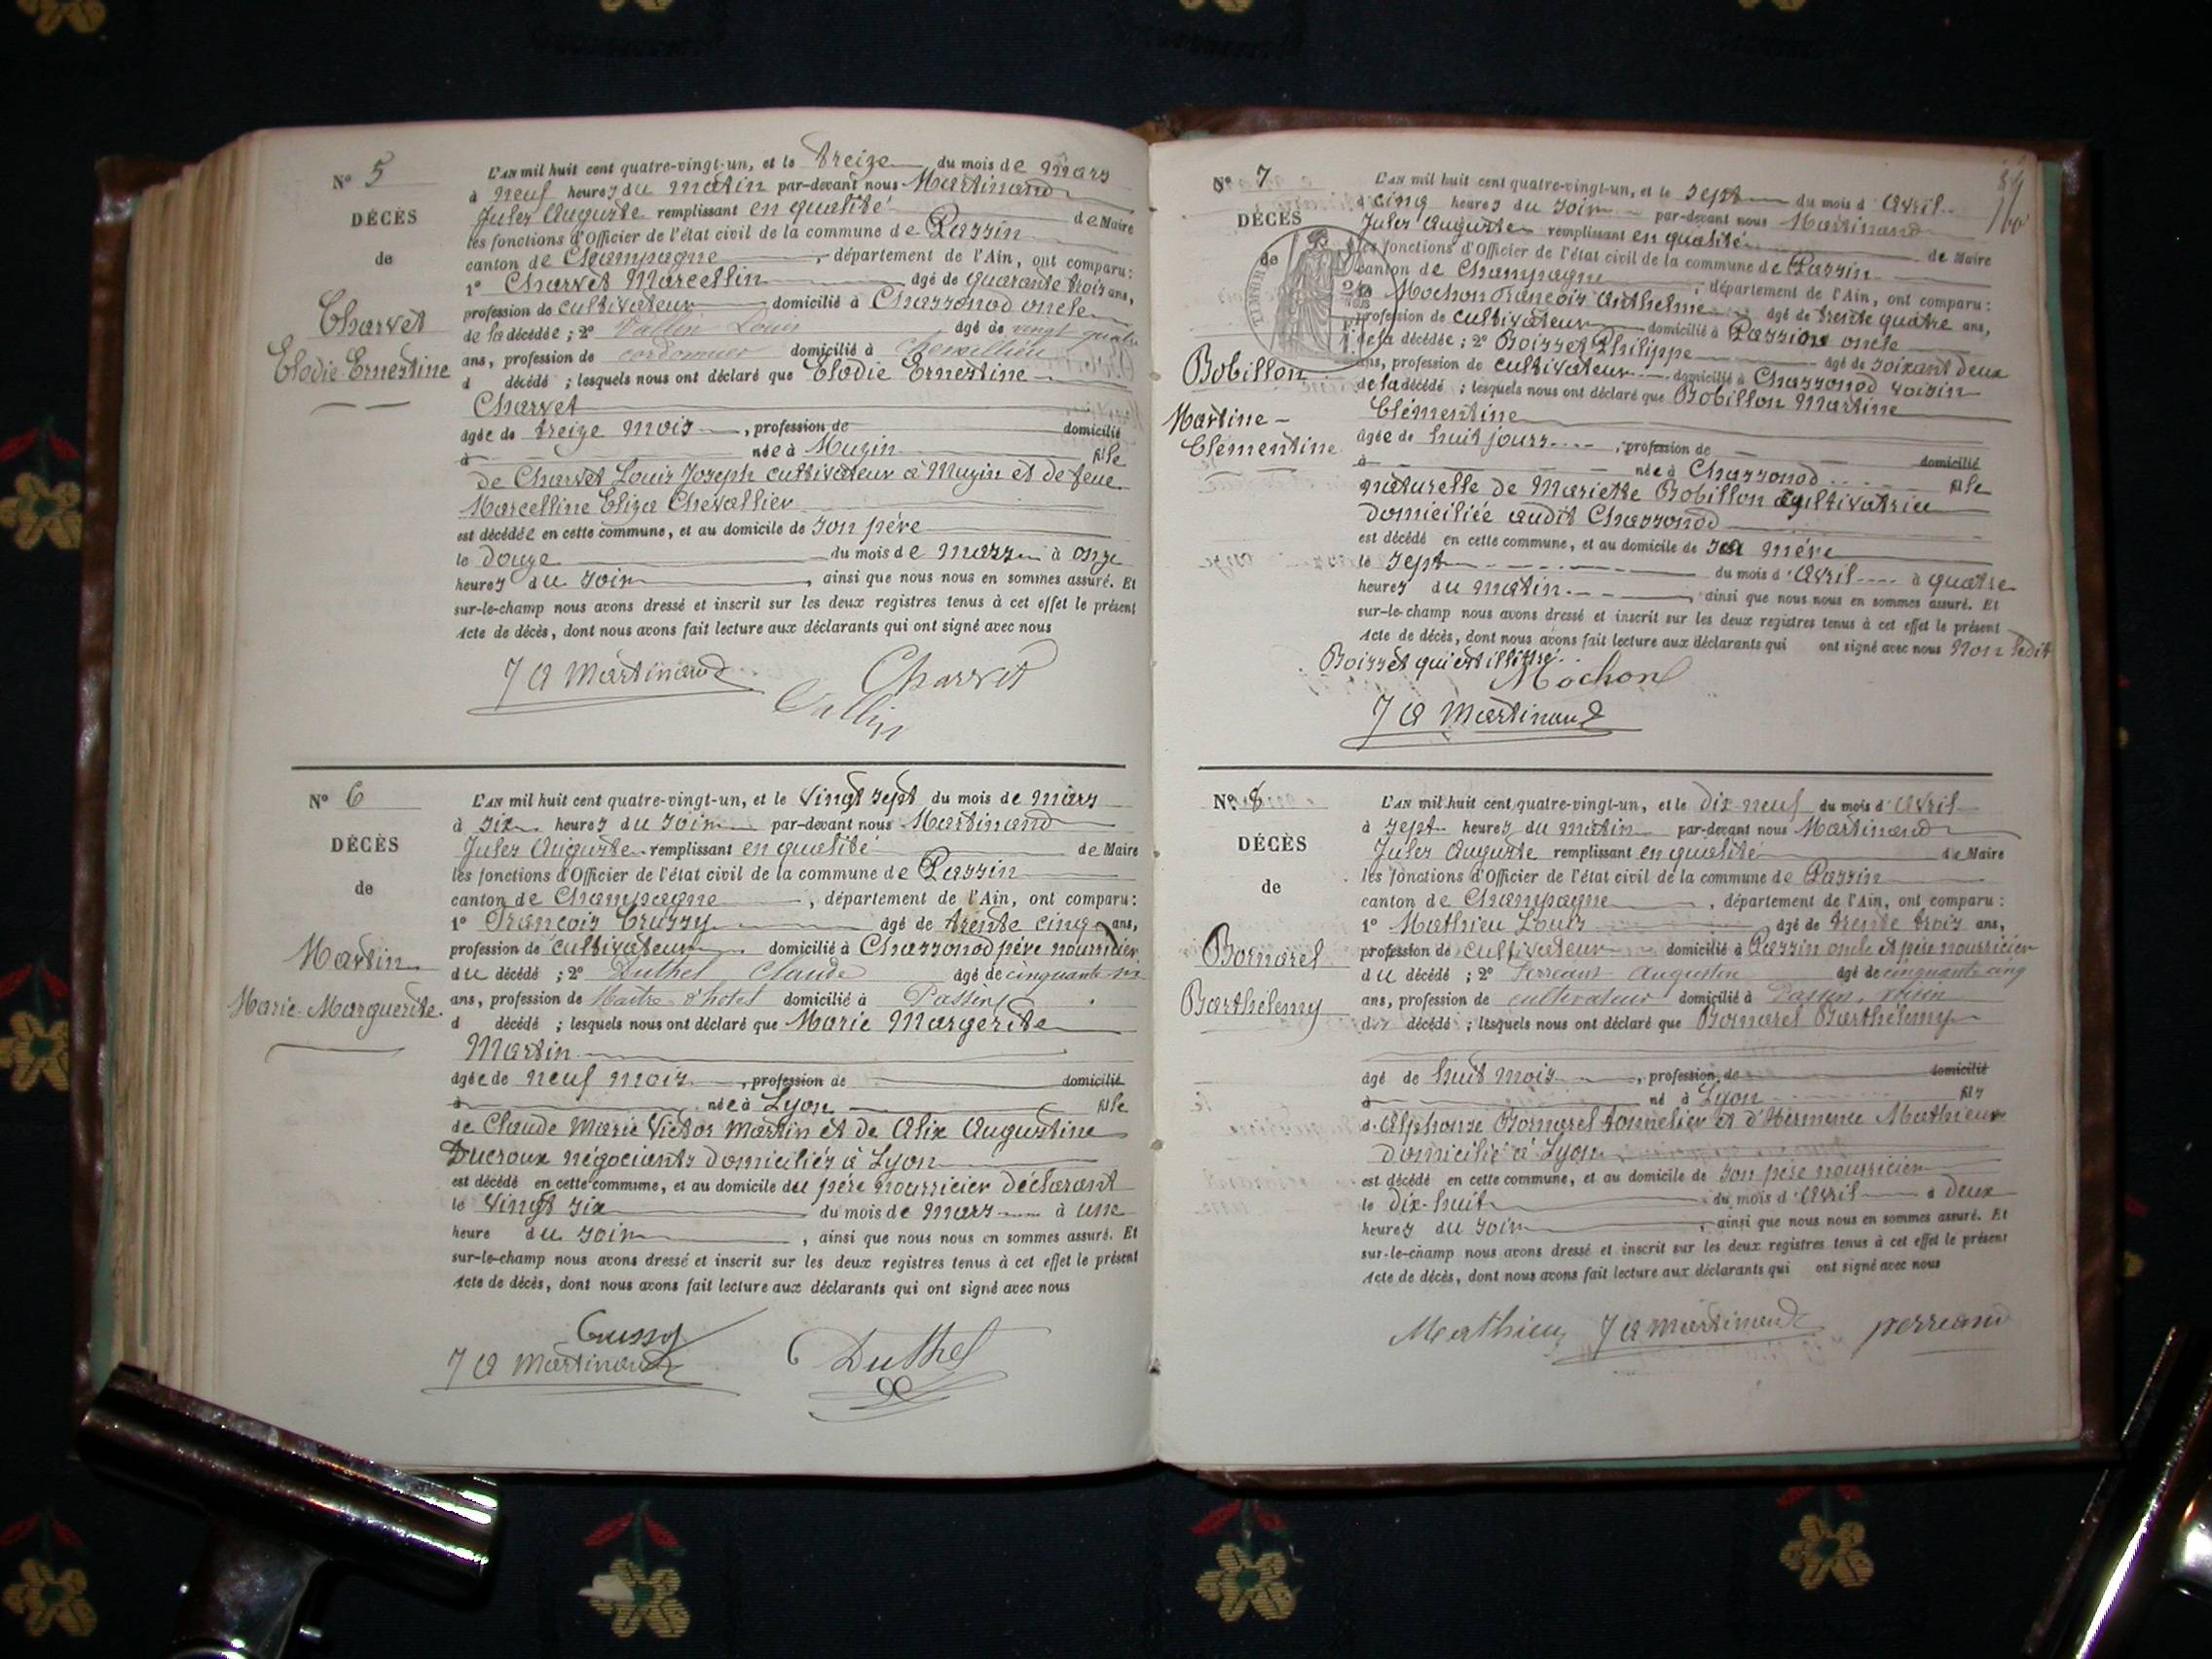 Nº 5
DÉCÈS
de
Charvet
Elodie Ernestine
L'AN mil huit cent quatre-vingt-un, et le treize du mois de Mars
à neuf heures du matin par-devant nous Martinand
Jules Auguste remplissant en qualité de Maire
les fonctions d'Officier de l'état civil de la commune de Passin
canton de Champagne, département de l'Ain, ont comparu :
1º Charvet Marcellin âgé de quarante trois ans,
profession de cultivateur domicilié à Chassonod oncle
de la décédée ; 2º Vallin Louis âgé de vingt quatre
ans, profession de cordonnier domicilié à
d décédé ; lesquels nous ont déclaré que Elodie Ernestine
Charvet
âgée de treize mois, profession de domicilié
à née à Muzin fille
de Charvet Louis Joseph cultivateur à Muzin et de feue
Marcelline Eliza Chevallier
est décédée en cette commune, et au domicile de son père
le douze du mois de mars à onze
heures du soir, ainsi que nous nous en sommes assuré. Et
sur-le-champ nous avons dressé et inscrit sur les deux registres tenus à cet effet le présent
Acte de décès, dont nous avons fait lecture aux déclarants qui ont signé avec nous
J A Martinand Charvet
Vallin
Nº 6
DÉCÈS
de
Martin
Marie-Marguerite.
L'AN mil huit cent quatre-vingt-un, et le vingt sept du mois de Mars
à six heures du soir par-devant nous Martinand
Jules Auguste remplissant en qualité de Maire
les fonctions d'Officier de l'état civil de la commune de Passin
canton de Champagne, département de l'Ain, ont comparu :
1º François Crussy âgé de trente cinq ans,
profession de cultivateur domicilié à Chassonod père nourricier
du décédé ; 2º Duthel Claude âgé de cinquante six
ans, profession de Maître d'hotel domicilié à Passin
d décédé ; lesquels nous ont déclaré que Marie Margerite
Martin
âgée de neuf mois, profession de domicilié
à née à Lyon fille
de Claude Marie Victor Martin et de Alix Augustine
Ducroux négociants domiciliés à Lyon
est décédé en cette commune, et au domicile du père nourricier déclarant
le vingt six du mois de mars à une
heure du soir, ainsi que nous nous en sommes assuré. Et
sur-le-champ nous avons dressé et inscrit sur les deux registres tenus à cet effet le présent
Acte de décès, dont nous avons fait lecture aux déclarants qui ont signé avec nous
Crussy
J A Martinand Duthel
Nº 7
DÉCÈS
de
TIMBRE
Bobillon
Martine-
Clémentine
L'AN mil huit cent quatre-vingt-un, et le sept du mois d'Avril
à cinq heures du soir par-devant nous Martinand
Jules Auguste remplissant en qualité de Maire
les fonctions d'Officier de l'état civil de la commune de Passin
canton de Champagne, département de l'Ain, ont comparu :
1º Mochon François Anthelme âgé de trente quatre ans,
profession de cultivateur domicilié à Passin oncle
de la décédée ; 2º Boisset Philippe âgé de soixant deux
ans, profession de cultivateur domicilié à Chassonod voisin
de la décédé ; lesquels nous ont déclaré que Bobillon Martine
Clémentine
âgée de huit jours, profession de domicilié
à née à Chassonod fille
naturelle de Mariette Bobillon cultivatrice
domiciliée audit Chassonod
est décédé en cette commune, et au domicile de sa mère
le sept du mois d'Avril à quatre
heures du matin, ainsi que nous nous en sommes assuré. Et
sur-le-champ nous avons dressé et inscrit sur les deux registres tenus à cet effet le présent
Acte de décès, dont nous avons fait lecture aux déclarants qui ont signé avec nous Non ledit
Boisset qui est illitré.
Mochon
J A Martinand
Nº 8
DÉCÈS
de
Bornarel
Barthélemy
L'AN mil huit cent quatre-vingt-un, et le dix-neuf du mois d'Avril
à sept heures du matin par-devant nous Martinand
Jules Auguste remplissant en qualité de Maire
les fonctions d'Officier de l'état civil de la commune de Passin
canton de Champagne, département de l'Ain, ont comparu :
1º Mathieu Louis âgé de trente trois ans,
profession de cultivateur domicilié à Passin oncle et père nourricier
du décédé ; 2º Perreant Augustin âgé de cinquante cinq
ans, profession de cultivateur domicilié à Passin, voisin
du décédé ; lesquels nous ont déclaré que Bornarel Barthélemy
âgé de huit mois, profession de domicilié
à né à Lyon fils
d'Alphonse Bornarel tonnelier et d'Hermence Mathieux
domicilié à Lyon
est décédé en cette commune, et au domicile de son père nourricier
le dix-huit du mois d'Avril à deux
heures du soir, ainsi que nous nous en sommes assuré. Et
sur-le-champ nous avons dressé et inscrit sur les deux registres tenus à cet effet le présent
Acte de décès, dont nous avons fait lecture aux déclarants qui ont signé avec nous
Mathieu J A Martinand perreand